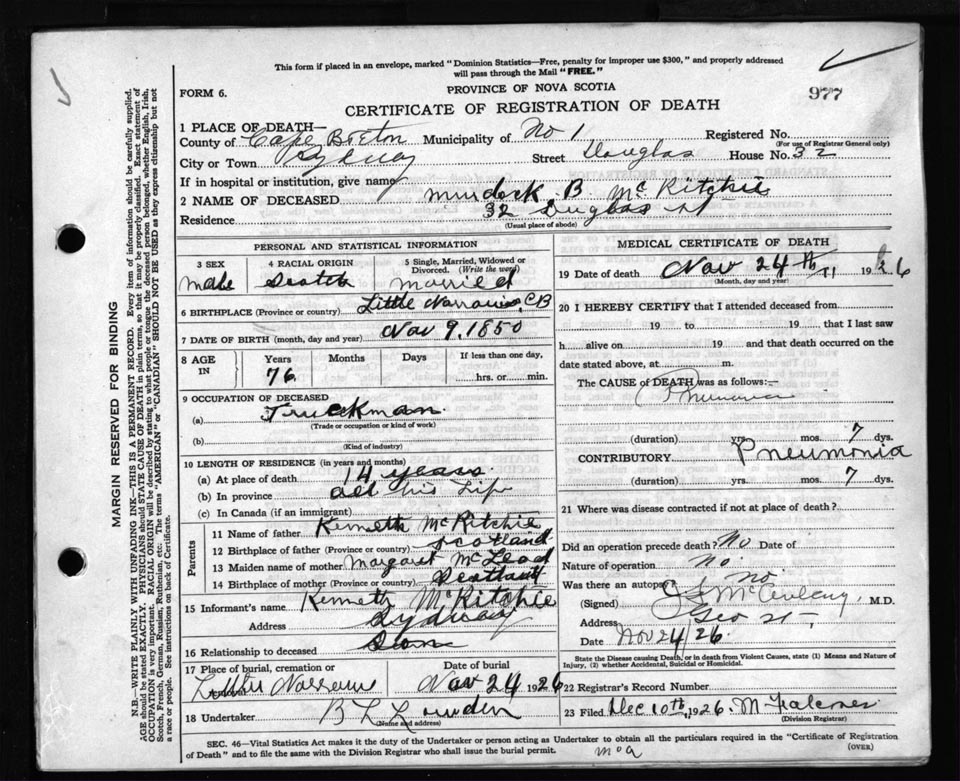 This form if placed in an envelope, marked "Dominion Statistics—Free, penalty for improper use $300," and properly addressed
will pass through the Mail "FREE."
977
FORM 6.
PROVINCE OF NOVA SCOTIA
CERTIFICATE OF REGISTRATION OF DEATH
1 PLACE OF DEATH—
County of Cape Breton Municipality of No 1 Registered No.
(For use of Registrar General only)
City or Town Sydney Street Douglas House No. 32
If in hospital or institution, give name
2 NAME OF DECEASED Murdock B. McRitchie
Residence 32 Duglas St
(Usual place of abode)
PERSONAL AND STATISTICAL INFORMATION
3 SEX 4 RACIAL ORIGIN 5 Single, Married, Widowed or
Divorced. (Write the word)
Male Scotch Married
6 BIRTHPLACE (Province or country) Little Narrows, CB
7 DATE OF BIRTH (month, day and year) Nov 9, 1850
8 AGE IN Years Months Days If less than one day,
76 hrs. or min.
9 OCCUPATION OF DECEASED
(a) Truckman
(Trade or occupation or kind of work)
(b)
(Kind of industry)
10 LENGTH OF RESIDENCE (in years and months)
(a) At place of death 14 years
(b) In province all his Life
(c) In Canada (if an immigrant)
Parents
11 Name of father Kenneth McRitchie
12 Birthplace of father (Province or country) Scotland
13 Maiden name of mother Margaret McLeod
14 Birthplace of mother (Province or country) Scotland
15 Informant's name Kenneth McRitchie
Address Sydney
16 Relationship to deceased Son
17 Place of burial, cremation or Date of burial
Little Narrows Nov 24 1926
18 Undertaker B L Lowden
(Name and address)
MEDICAL CERTIFICATE OF DEATH
19 Date of death Nov 24th 11 1926
(Month, day and year)
20 I HEREBY CERTIFY that I attended deceased from
19 to 19 that I last saw
h alive on 19 and that death occurred on the
date stated above, at m.
The CAUSE of DEATH was as follows:—
Pneumonia
(duration) yrs. mos. 7 dys.
CONTRIBUTORY Pneumonia
(duration) yrs. mos. 7 dys.
21 Where was disease contracted if not at place of death?
Did an operation precede death? No Date of
Nature of operation No
Was there an autopsy? No
(Signed) M.D.
Address Geo St.
Date Nov 24/26.
State the Disease causing Death, or in death from Violent Causes, state (1) Means and Nature of
Injury, (2) whether Accidental, Suicidal or Homicidal.
22 Registrar's Record Number
23 Filed Dec 10th, 1926. M
(Division Registrar)
SEC. 46—Vital Statistics Act makes it the duty of the Undertaker or person acting as Undertaker to obtain all the particulars required in the "Certificate of Registration
of Death" and to file the same with the Division Registrar who shall issue the burial permit.
(OVER)
MARGIN RESERVED FOR BINDING
N.B.—WRITE PLAINLY WITH UNFADING INK—THIS IS A PERMANENT RECORD. Every item of information should be carefully supplied.
AGE should be stated EXACTLY. PHYSICIANS should STATE CAUSE OF DEATH in plain terms, so that it may be properly classified. Exact statement of
OCCUPATION is very important. RACIAL ORIGIN will be described by stating to what people or tongue the deceased person belonged, whether English, Irish,
Scotch, French, German, Russian, Ruthenian, etc. The terms "AMERICAN" or "CANADIAN" SHOULD NOT BE USED as they express citizenship but not
a race or people. See instructions on back of Certificate.